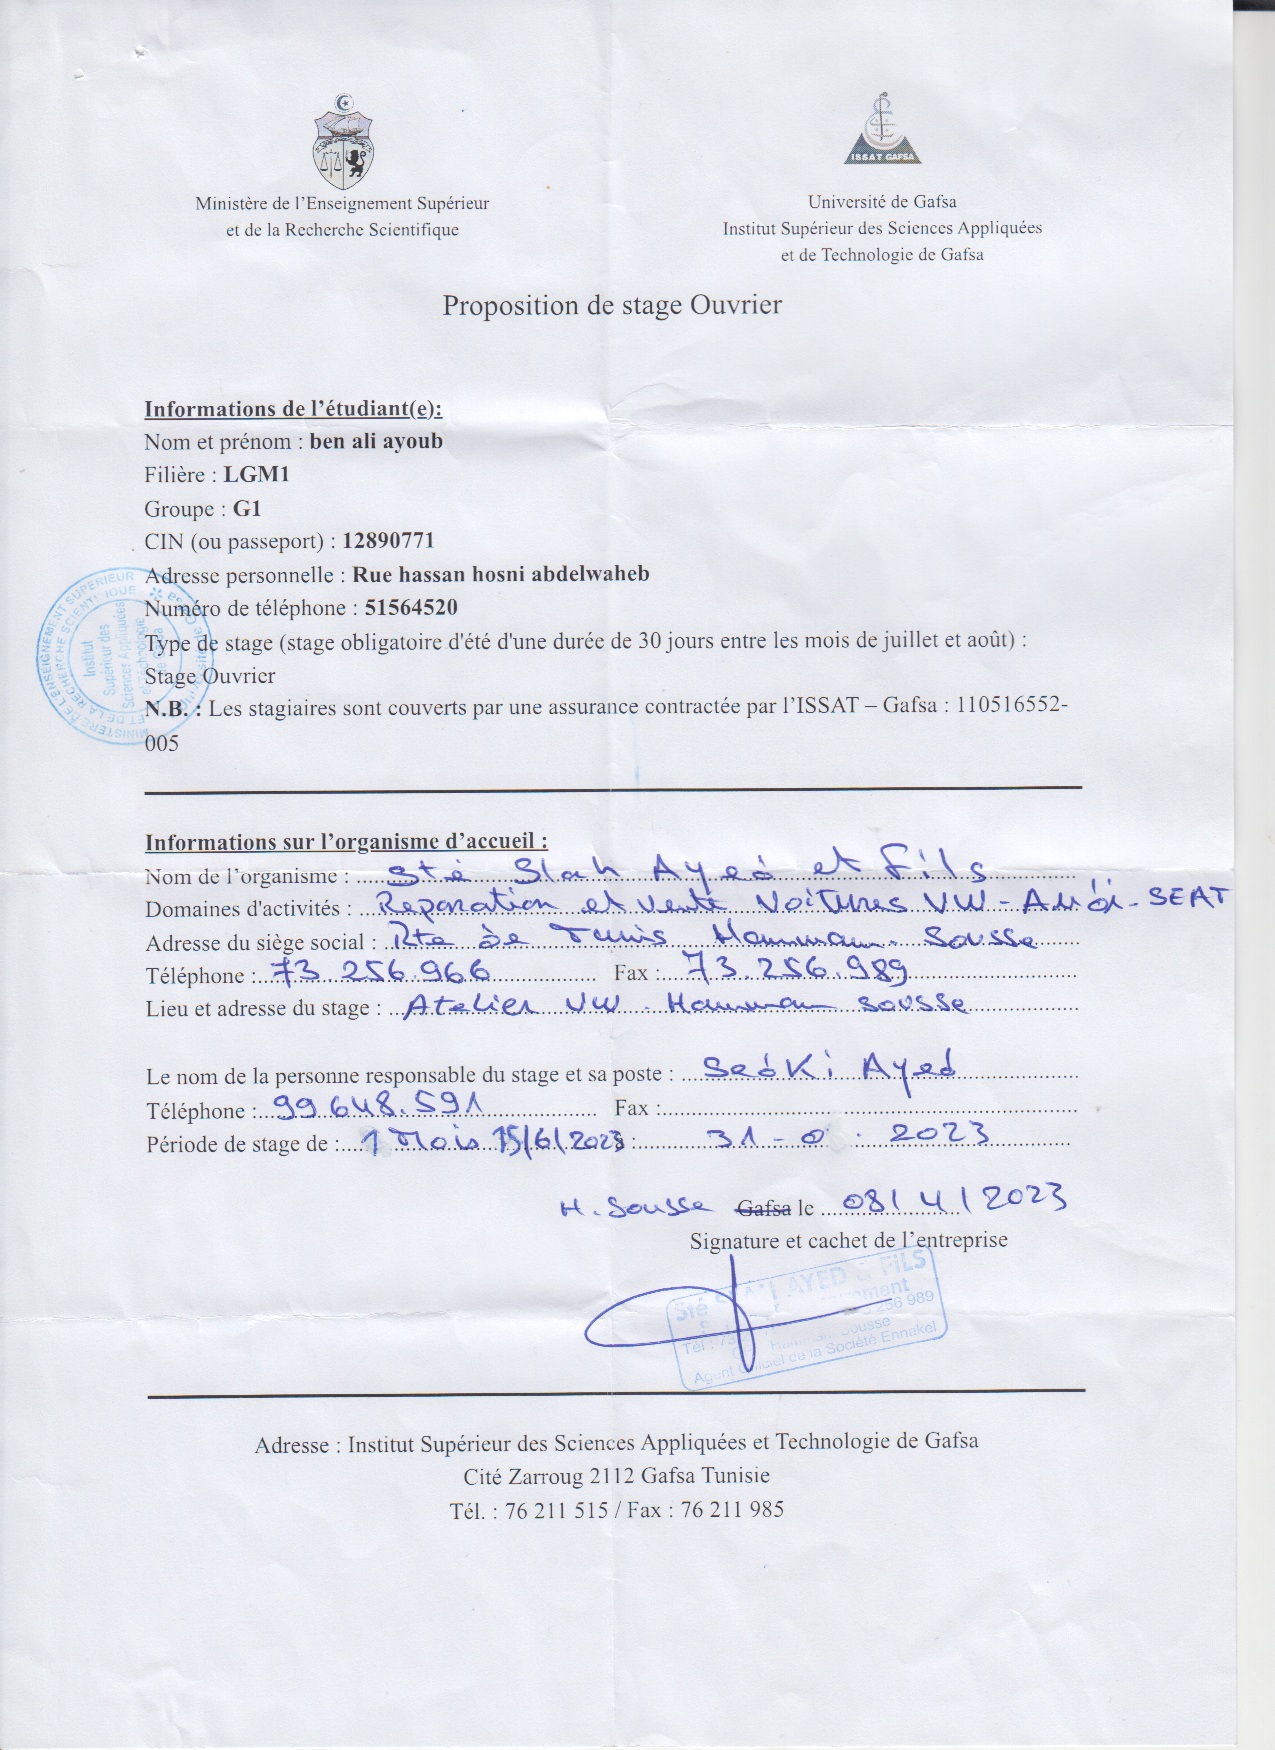 ISSAT GAFSA
Ministère de l'Enseignement Supérieur
et de la Recherche Scientifique
Université de Gafsa
Institut Supérieur des Sciences Appliquées
et de Technologie de Gafsa
Proposition de stage Ouvrier
Informations de l'étudiant(e):
Nom et prénom : ben ali ayoub
Filière : LGM1
Groupe : G1
CIN (ou passeport) : 12890771
Adresse personnelle : Rue hassan hosni abdelwaheb
Numéro de téléphone : 51564520
Type de stage (stage obligatoire d'été d'une durée de 30 jours entre les mois de juillet et août) :
Stage Ouvrier
N.B. : Les stagiaires sont couverts par une assurance contractée par l'ISSAT – Gafsa : 110516552-
005
MINISTERE DE L'ENSEIGNEMENT SUPERIEUR
ET DE LA RECHERCHE SCIENTIFIQUE
Institut
Supérieur des
Sciences Appliquées
et Technologie
Informations sur l'organisme d'accueil :
Nom de l'organisme : Sté Slah Ayed et Fils
Domaines d'activités : Reparation et vente Voitures VW - Audi - SEAT
Adresse du siège social : Rte de Tunis Hammam Sousse
Téléphone : 73.256.966 Fax : 73.256.989
Lieu et adresse du stage : Atelier VW. Hammam sousse
Le nom de la personne responsable du stage et sa poste : Sedki Ayed
Téléphone : 99.648.591 Fax :
Période de stage de : 1 Mois 15/6/2023 à : 31 - 2023
H. Sousse Gafsa le 08/4/2023
Signature et cachet de l'entreprise
Sté AYED & FILS
256 989
Tél : Sousse
Agent Officiel de la Société Ennakel
Adresse : Institut Supérieur des Sciences Appliquées et Technologie de Gafsa
Cité Zarroug 2112 Gafsa Tunisie
Tél. : 76 211 515 / Fax : 76 211 985